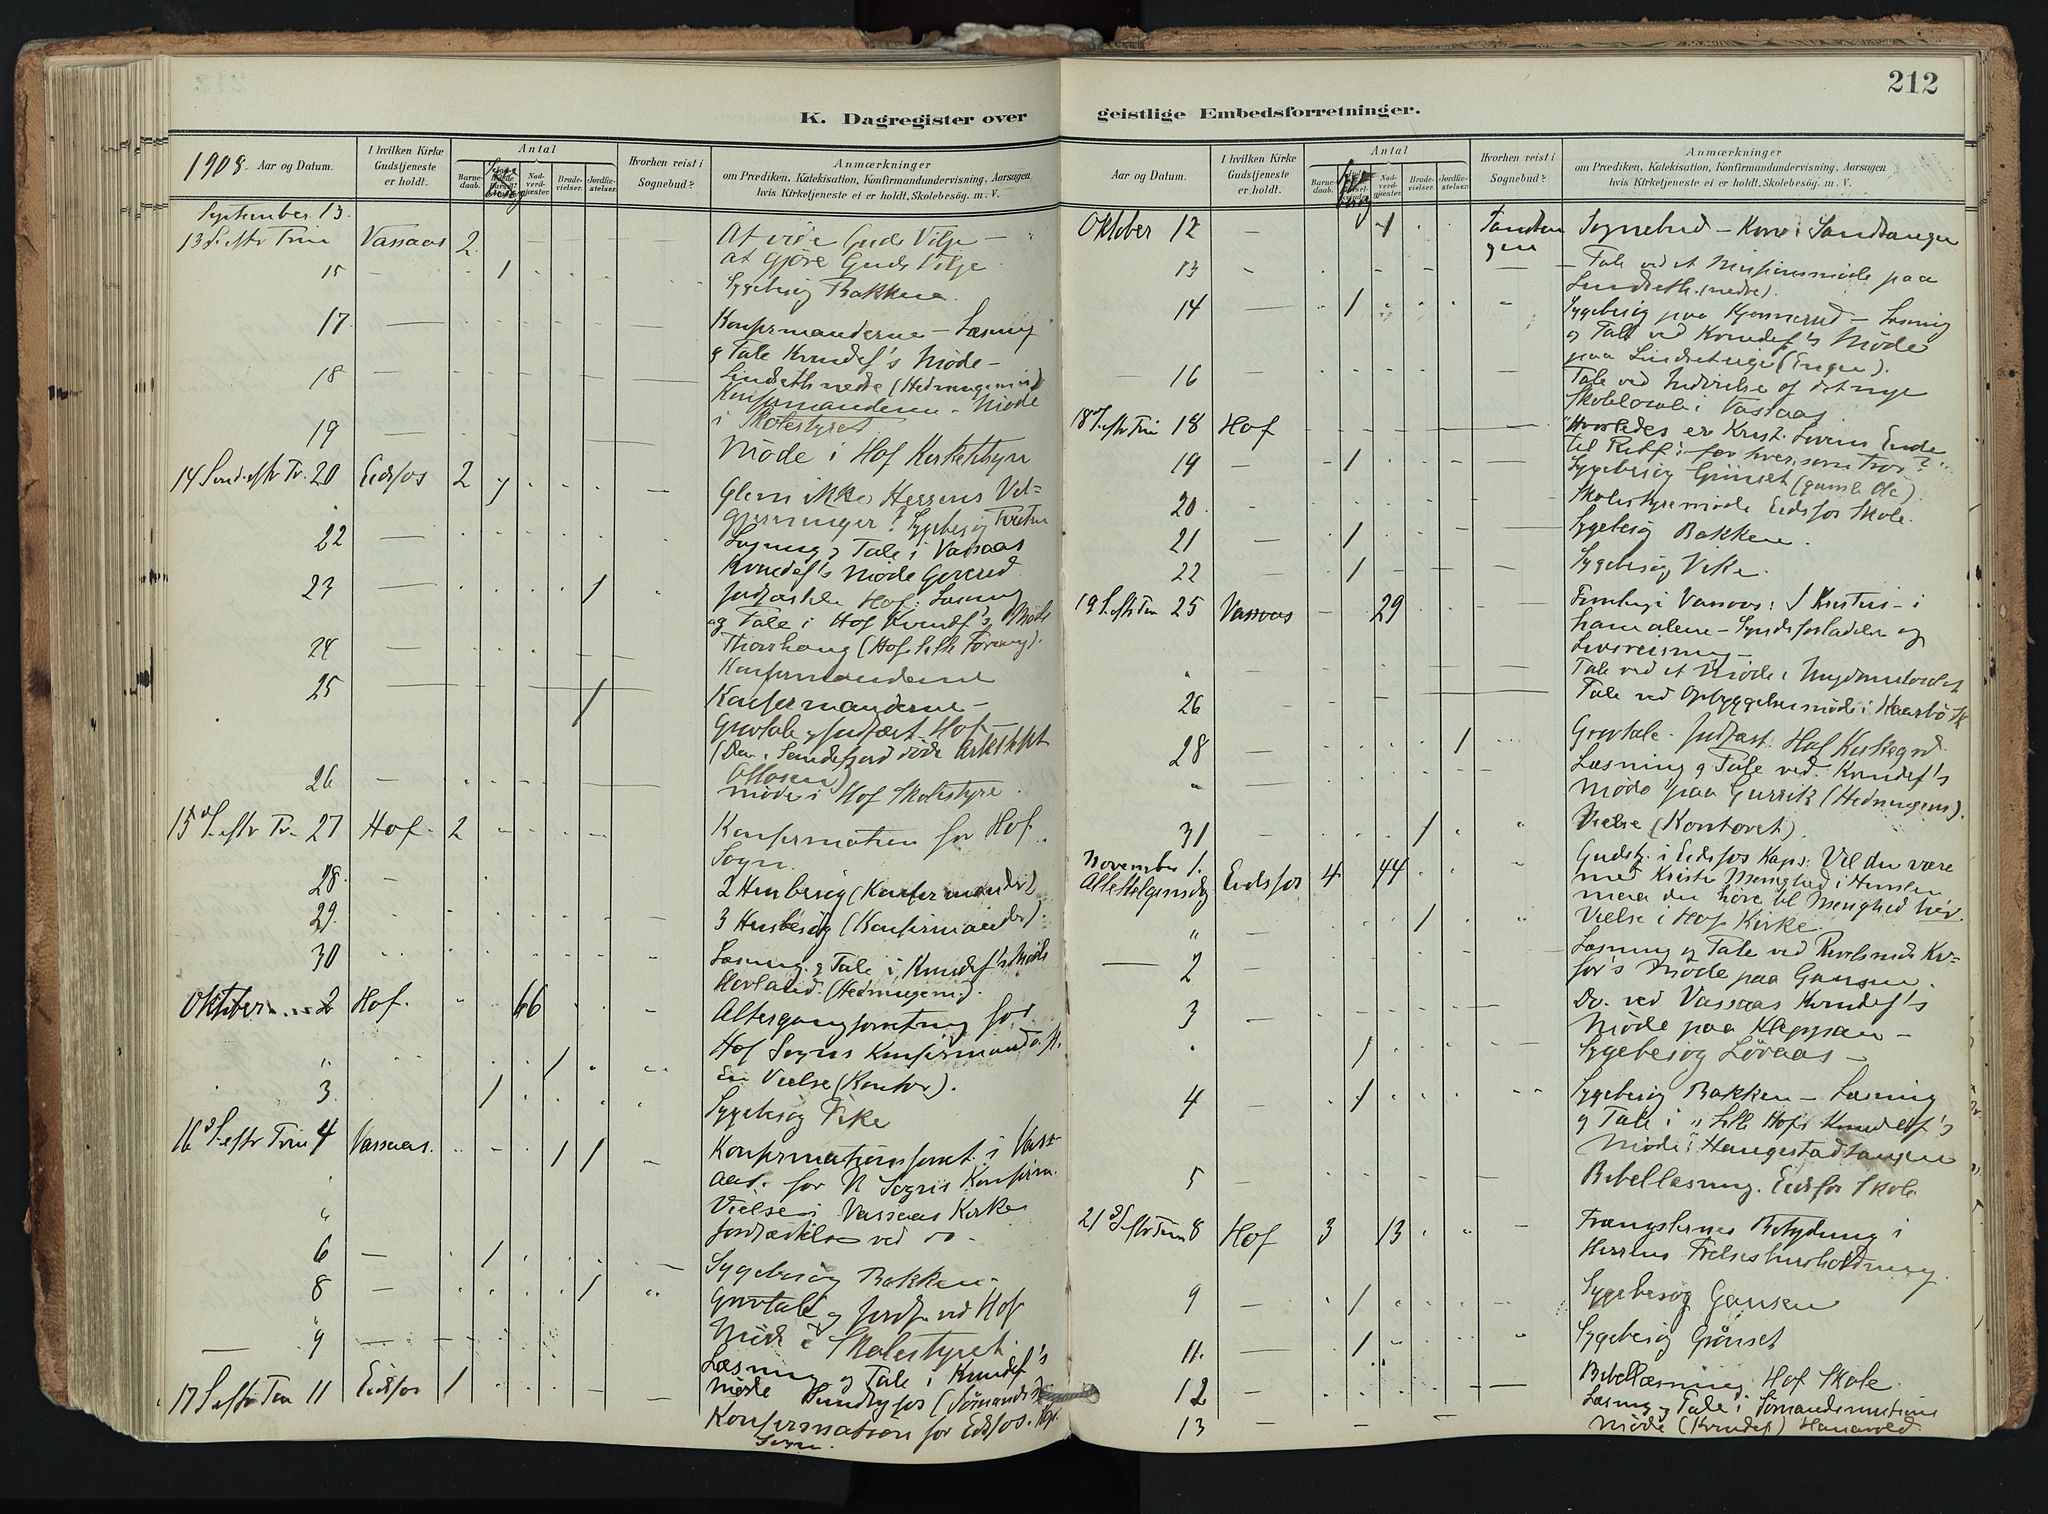 212
K. Dagregister over
geistlige Embedsforretninger.
1908. Aar og Datum.
I hvilken Kirke Gudstjeneste er holdt.
Antal
Barnedaab.
Nadverdgjester.
Brudevielser.
Jordfæstelser.
Hvorhen reist i Sognebud?
Anmærkninger
om Prædiken, Katekisation, Konfirmandundervisning, Aarsagen
hvis Kirketjeneste ei er holdt, Skolebesøg, m. V.
September 13.
13 S. eftr Trin Vassaas 2 At vide Guds Vilje –
at gjøre Guds Vilje
15 1 Sygebesøg Bakkene.
17. Konfirmanderne – Læsning
g Tale Kvindef's Møde –
18 Lindseth nedre (Hedningemis)
Konfirmanderne – Møde
i Skolestyret
19 Møde i Hof
14 Sønd. eftr Tr. 20 Eidsfos 2 Glem ikke Herrens Vel-
gjerninger! Sygebesøg
22 Læsning g Tale i Vassaas
Kvindef's Møde
23 1 Jordfæstelse Hof. Læsning
og Tale i Hof Kvindef's Møde
24 (Hof lille Foreng).
Konfirmanderne
25 1 Konfirmanderne –
Gravtale g Jordfæst. Hof –
(Den i Sandefjord døde Arkitekt
26 Møde i Hof Skolestyre.
15 S. eftr Tr. 27 Hof. 2 Konfirmation for Hof
Sogn.
28. 2 Husbesøg (Konfirmander)
29. 3 Husbesøg (Konfirmander).
30 Læsning g Tale i Kvindef's Møde
Hovland. (Hedningemis).
Oktober 2 Hof. 66 Altergangsforretning for
Hof Sogns Konfirmand
1 En Vielse (Kontor).
3 1 Sygebesøg Vike
16 S. eftr Trin 4 Vassaas. 1 1 Konfirmationsforret. i Vass-
aas. for N Sogns Konfirm.
Vielse i Vassaas Kirke
Jordfæstelse ved do –
6 1 Sygebesøg Bakken –
8 1 Gravtale og Jordf. ved Hof
9 Møde i Skolestyret.
Læsning og Tale i Kvindef's
Møde Sundbyfos
17 S. eftr Trin 11 Eidsfos 1 Konfirmation for Eidsfos Kap.
Sogn.
Aar og Datum.
I hvilken Kirke Gudstjeneste er holdt.
Antal
Barnedaab.
Nadverdgjester.
Brudevielser.
Jordfæstelser.
Hvorhen reist i Sognebud?
Anmærkninger
om Prædiken, Katekisation, Konfirmandundervisning, Aarsagen
hvis Kirketjeneste ei er holdt, Skolebesøg, m. V.
Oktober 12 1 Sandtangen Sognebud – Kone i Sandtangen
13 Tale ved et Missionsmøde paa
Lindseth (nedre).
14 1 Sygebesøg paa – Læsning
g Tale ved Kvindef's Møde
paa (Engen).
16 Tale ved Indvielse af det nye
Skolelocale i Vassaas
18 S. eftr Trin 18 Hof Hvorledes er Krist. Lovens Ende
til Retf. for hver, som tror?
19 1 Sygebesøg Grønset (gamle Ole)
20. Skolestyremøde Eidsfos Skole.
21 1 Sygebesøg Bakken.
22 1 Sygebesøg Vike.
19 S. eftr Trin 25 Vassaas 29 i Vassaas: I Kristus – i
ham alene – Syndsforladelse og
Livsreisning –
Tale ved et Møde i
26 Tale ved Opbyggelsesmøde i
28 1 Gravtale – Jordfæst. Hof Kirkegrd.
Læsning g Tale ved Kvindef's
Møde paa (Hedningemis).
31 1 Vielse (Kontoret).
November 1.
Allehelgensdag Eidsfos 4 44 Gudstj. i Eidsfos Kap. Vil du være
med Kristi Menighed i Himlen
maa du høre til Menighed her.
1 Vielse i Hof Kirke.
2 Læsning og Tale ved
Møde paa Gansen.
3 Do. ved Vassaas Kvindef's
Møde paa Kloppen –
1 Sygebesøg Løvaas –
4 1 Sygebesøg Bakken – Læsning
g Tale i "Lille Hofs Kvindef's
Møde i Haugestadtangen
5 Bibellæsning. Eidsfos Skole.
21 S. eftr Trin 8 Hof 3 13 Trængslernes Betydning i
Herrens Frelseshusholdning.
9 1 Sygebesøg Gansen
11. 1 Sygebesøg Grønset
12 Bibellæsning Hof Skole.
13 Læsning g Tale i Sømandsmissions
Møde (Kvindef)